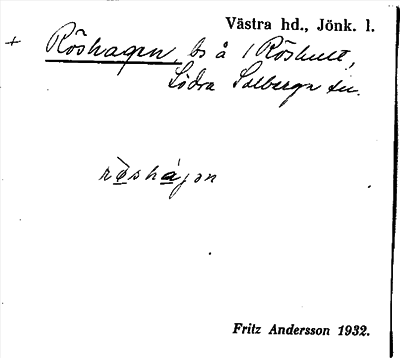 Västra hd., Jönk. l.
+ Röshagen, bs å 1 Röshult,
Södra Solberga sn.
röshágen
Fritz Andersson 1932.